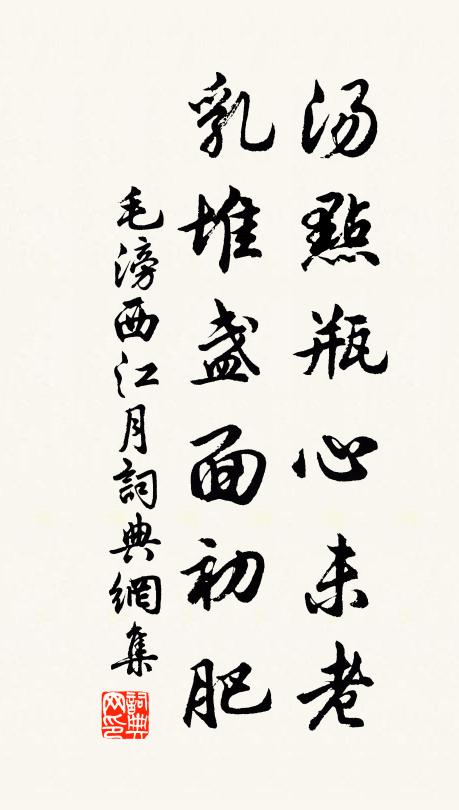 汤點瓶心未老
乳堆盏面初肥
毛滂西江月詞典網集
詞典網印